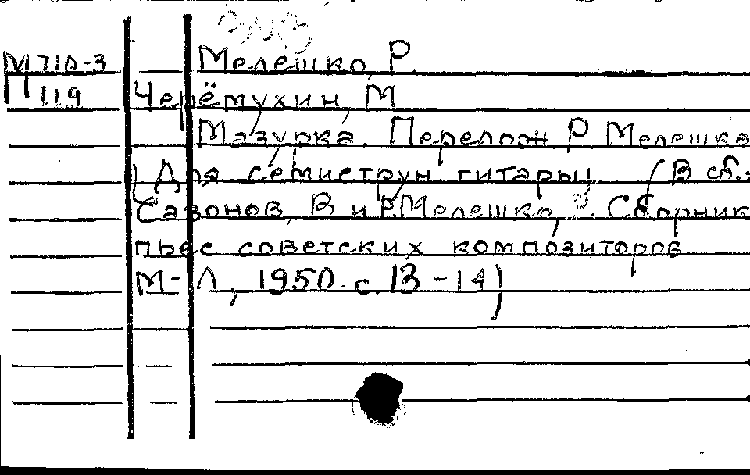 М 710-3 Мелешко, Р.
П 119 Черёмухин, М
Мазурка. Перелож Р Мелешко
(Для семиструн гитары. (В сб.:
Сазонов, В и Р. Мелешко, . Сборник
пьес советских композиторов
М-Л, 1950. с. 13-14)